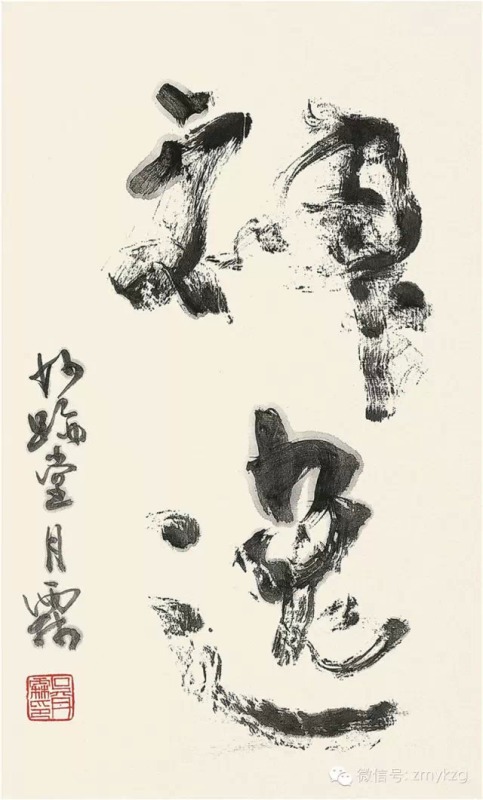 禅逸
妙堂月霖
微信号: zmykzg